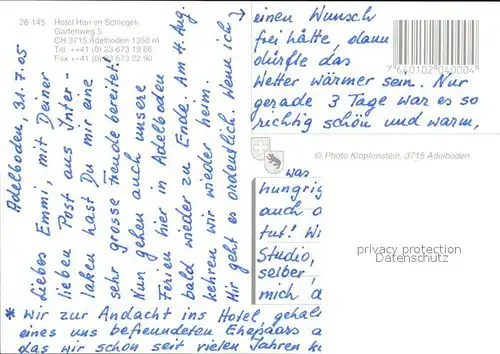 28-145 Hotel Hari im Schlegeli
Gartenweg 5
CH 3715 Adelboden 1350 m
Tel. ++41 (0) 33 673 19 66
Fax ++41 (0) 33 673 22 90
Adelboden, 31.7.05
Liebes Emmi, mit Deiner
lieben Post aus Inter-
laken hast Du mir eine
sehr grosse Freude bereitet!
Nun gehen auch unsere
Ferien hier in Adelboden
bald wieder zu Ende. Am 4. Aug.
kehren wir wieder heim.
Mir geht es ordentlich. Wenn ich
einen Wunsch
frei hätte, dann
dürfte das
Wetter wärmer sein. Nur
gerade 3 Tage war es so
richtig schön und warm,
7 640102 040004
© Photo Klopfenstein, 3715 Adelboden
was
hungrig
auch
tut! Wi
Studio,
selber,
mich
privacy protection
VENDOR
* wir zur Andacht ins Hotel, gehal
eines uns befreundeten Ehepaars
das wir schon seit vielen Jahren